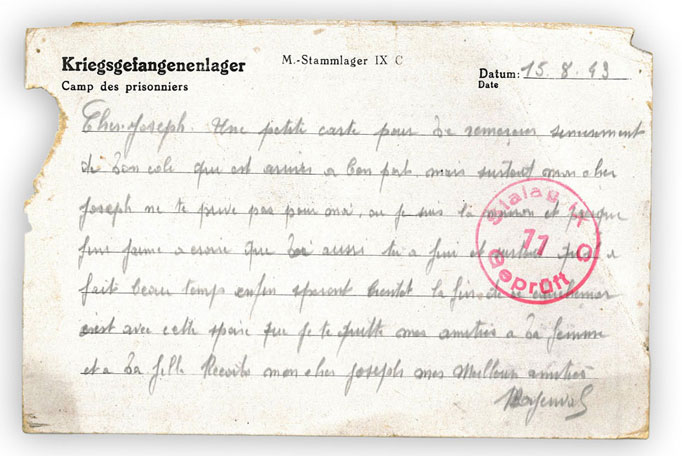 Kriegsgefangenenlager
Camp des prisonniers
M.-Stammlager IX C
Datum: 15.8.43
Date
Cher Joseph. Une petite carte pour te remercier
de ton colis qui est a bon port, mais surtout mon cher
Joseph ne te prive pas pour moi, ou je suis la et
aussi tu a fini et surtout
fait beau temps enfin bientot la fin de ce
c'est avec cette que je te quitte mes amitiés a ta femme
et a ta fille Recoits mon cher Joseph mes Meilleur amitiés
Stalag IX C
77
Geprüft